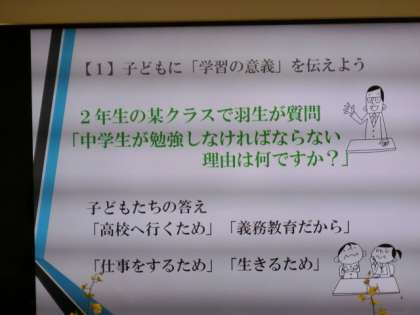 【1】子どもに「学習の意義」を伝えよう
２年生の某クラスで羽生が質問
「中学生が勉強しなければならない
理由は何ですか？」
子どもたちの答え
「高校へ行くため」「義務教育だから」
「仕事をするため」「生きるため」